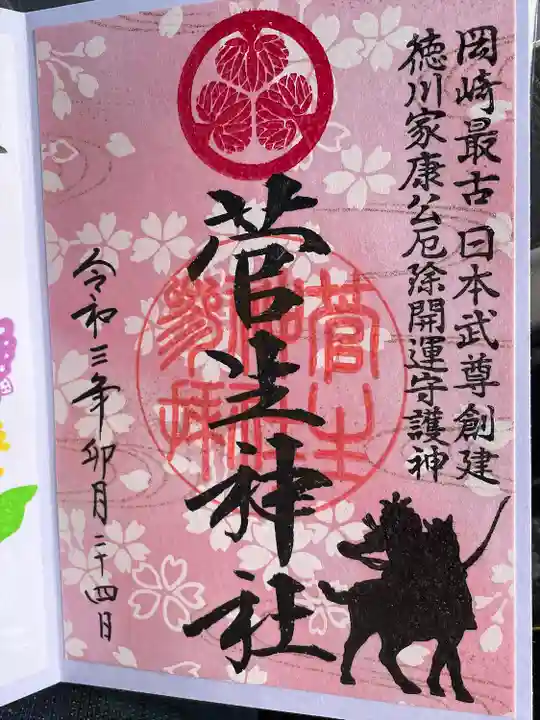 岡崎最古 日本武尊創建
徳川家康公厄除開運守護神
菅生神社
菅生神社参拝
令和三年卯月二十四日